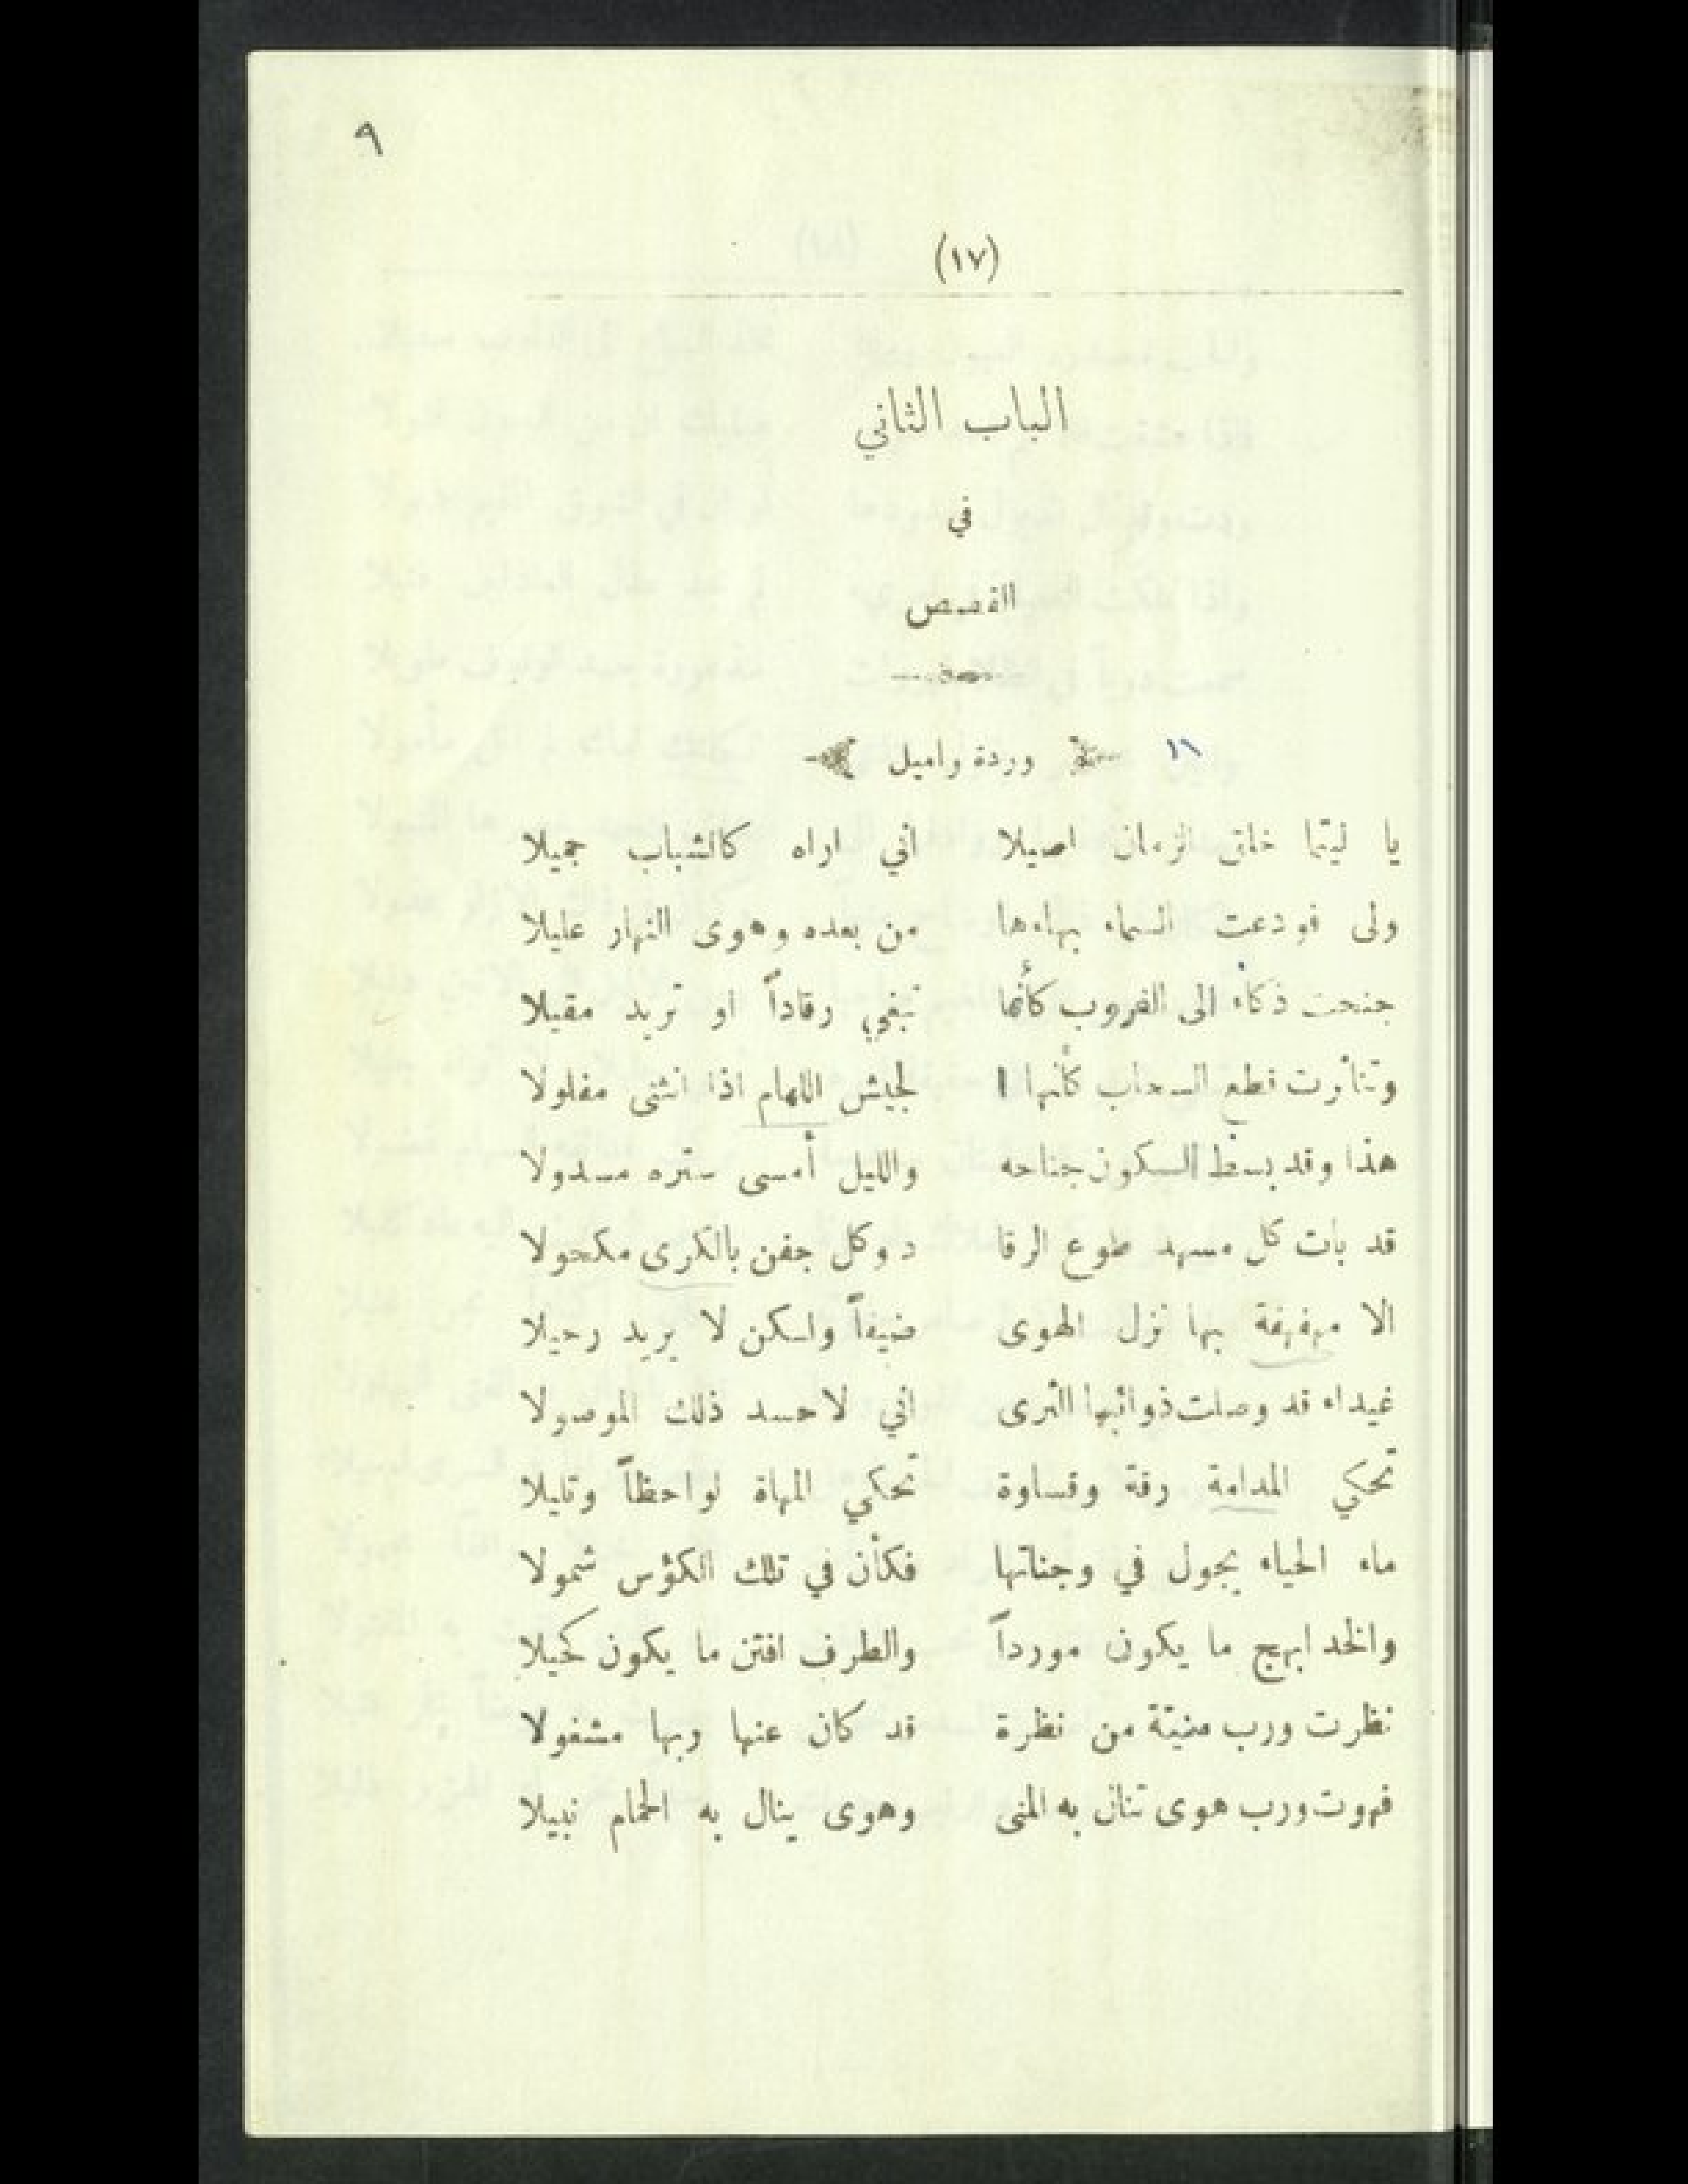 ٩
(١٧)
الباب الثاني
في
القصص
١٦ وردة واميل
يا ليتما خلق الزمان اصيلا اني اراه كالشباب جميلا
ولى فودعت السماء بهاءها من بعده وهوى النهار عليلا
جنحت ذكاء الى الغروب كأنما تبغي رقاداً او تريد مقيلا
وتناثرت قطع السحاب كأنها ا لجيش اللهام اذا انثنى مفلولا
هذا وقد بسط السكون جناحه والليل أمسى ستره مسدولا
قد بات كل مسهد طوع الرقا د وكل جفن بالكرى مكحولا
الا مهفهفة بها نزل الهوى ضيفاً ولكن لا يريد رحيلا
غيداء قد وصلت ذوائبها الثرى اني لاحسد ذلك الموصولا
تحكي المدامة رقة وقساوة تحكي المهاة لواحظاً وتليلا
ماء الحياء يجول في وجناتها فكأن في تلك الكؤس شمولا
والخد ابهج ما يكون مورداً والطرف افتن ما يكون كحيلا
نظرت ورب منيّة من نظرة قد كان عنها وبها مشغولا
فهوت ورب هوى تنال به المنى وهوى ينال به الحمام نبيلا